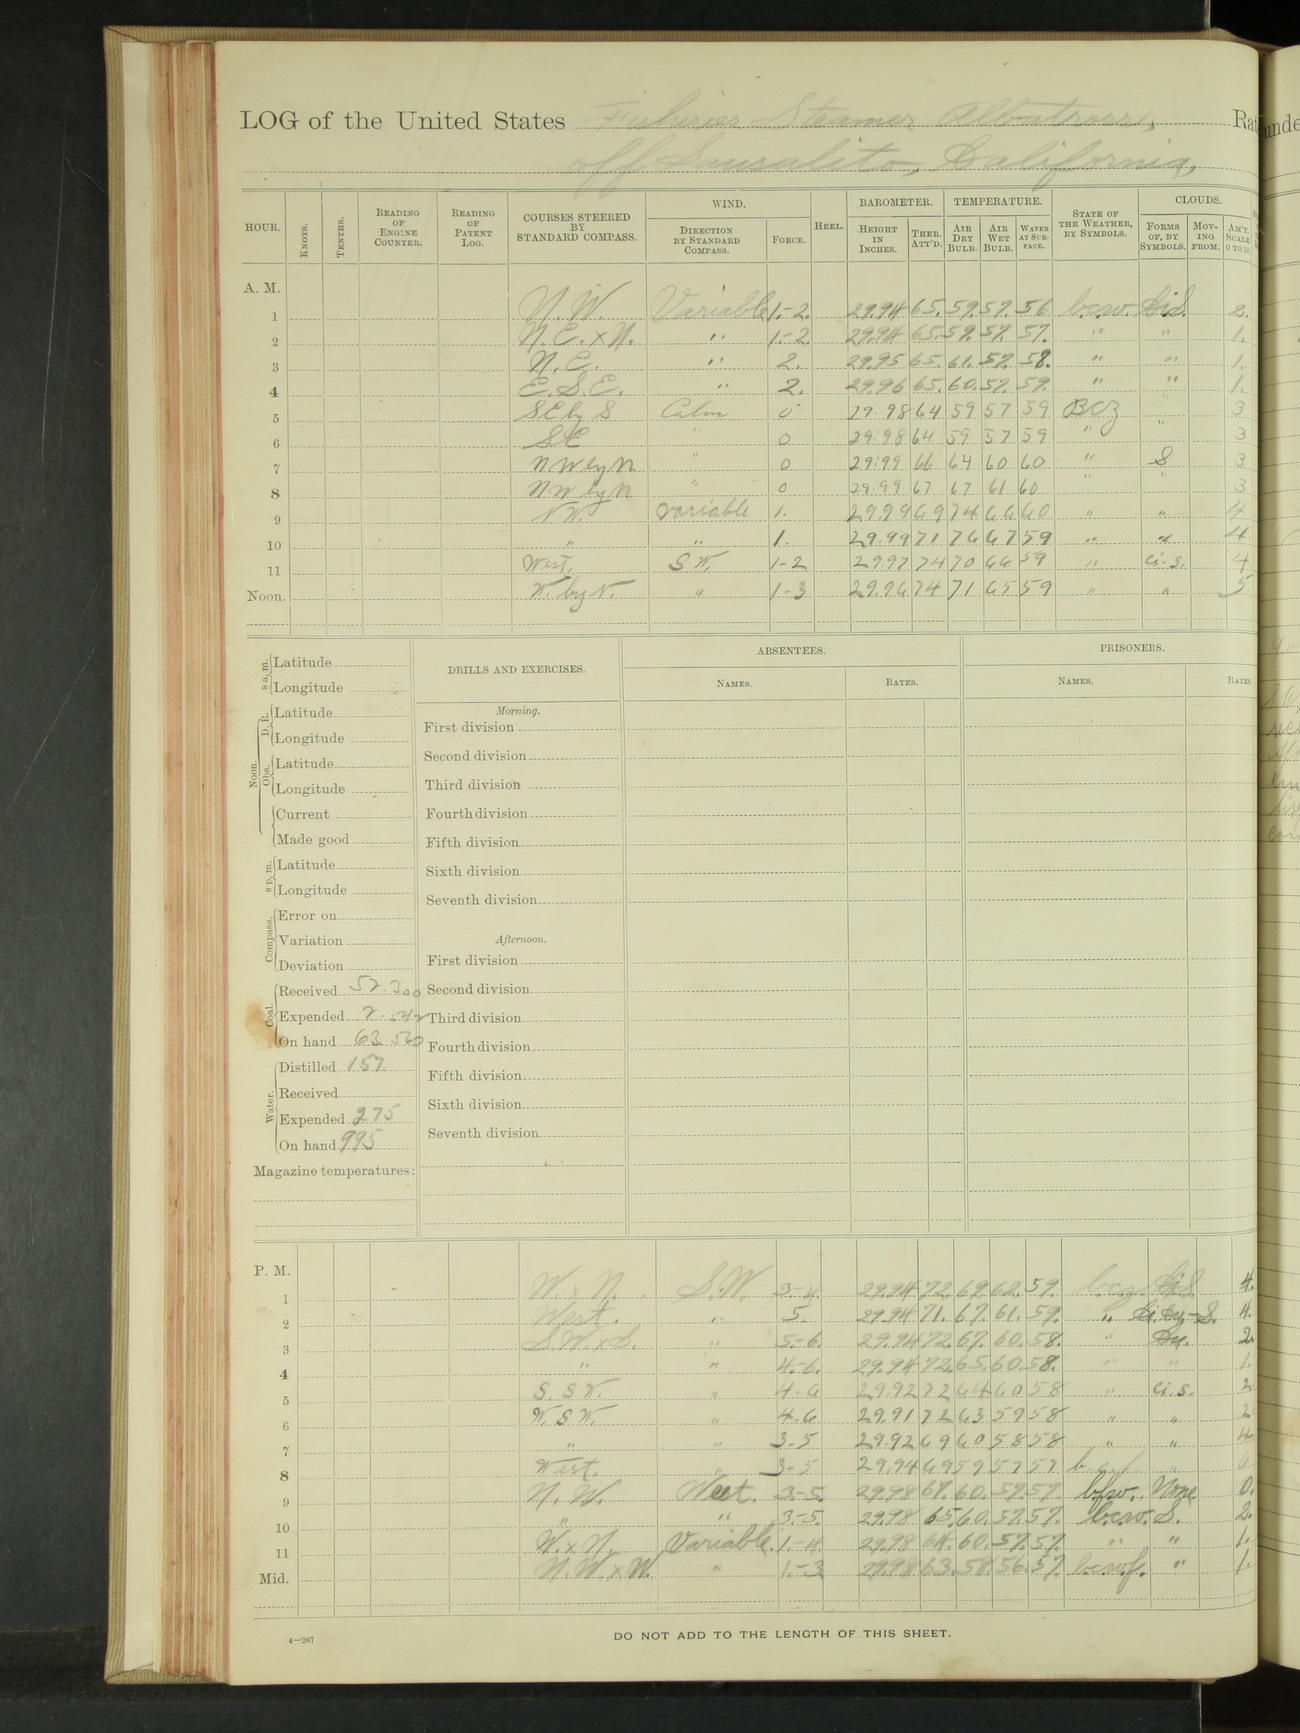 LOG of the United States Fisheries Steamer Albatross, Rat
off Sausalito, California,
HOUR. KNOTS. TENTHS. READING OF ENGINE COUNTER. READING OF PATENT LOG. COURSES STEERED BY STANDARD COMPASS. WIND. DIRECTION BY STANDARD COMPASS. FORCE. HEEL. BAROMETER. HEIGHT IN INCHES. THER. ATT'D. TEMPERATURE. AIR DRY BULB. AIR WET BULB. WATER AT SURFACE. STATE OF THE WEATHER, BY SYMBOLS. CLOUDS. FORMS OF, BY SYMBOLS. MOVING FROM. AM'T. SCALE 0 TO 10.
A. M.
1 N.W. Variable 1-2. 29.94 65. 59. 57. 56 b.c.w. Ci.S. 2.
2 N.E. x N. " 1-2. 29.94 65. 59. 57. 57. " " 1.
3 N.E. " 2. 29.95 65. 61. 57. 58. " " 1.
4 E.S.E. " 2. 29.96 65. 60. 57. 59. " " 1.
5 SE by S Calm 0 29.98 64 59 57 59 BCZ " 3
6 SE " 0 29.98 64 59 57 59 " " 3
7 NW by N " 0 29.99 66 64 60 60 " S 3
8 NW by N " 0 29.99 67 67 61 60 " " 3
9 N.W. Variable 1. 29.99 69 74 66 60 " " 4
10 " " 1. 29.99 71 76 67 59 " " 4
11 West. S.W. 1-2 29.97 74 70 66 59 " Ci.-S. 4
Noon. W. by N. " 1-3 29.96 74 71 65 59 " " 5.
8 a. m. Latitude
Longitude
Noon. D. R. Latitude
Longitude
Obs. Latitude
Longitude
Current
Made good
8 p. m. Latitude
Longitude
Compass. Error on
Variation
Deviation
Coal. Received 52.300
Expended 2.542
On hand 63 560
Water. Distilled 157
Received
Expended 275
On hand 995
Magazine temperatures:
DRILLS AND EXERCISES.
Morning.
First division
Second division
Third division
Fourth division
Fifth division
Sixth division
Seventh division
Afternoon.
First division
Second division
Third division
Fourth division
Fifth division
Sixth division
Seventh division
ABSENTEES.
NAMES. RATES.
PRISONERS.
NAMES. RATES.
P. M.
1 W. x N. S.W. 3-4. 29.94 72. 69. 62. 59. b.c.z. Ci.S. 4.
2 West. " 5. 29.94 71. 67. 61. 59. " 4.
3 S.W. x S. " 5-6. 29.94 72. 67. 60. 58. " Cu. 2.
4 " " 4-6. 29.94 72. 65. 60. 58. " " 1.
5 S. S W. " 4-6 29.92 72 64 60 58 " Ci.S. 2
6 W. S W. " 4-6 29.91 72 63 59 58 " " 2
7 " " 3-5 29.92 69 60 58 58 " " 4
8 West. " 3-5 29.94 69 59 57 57 "
9 N. W. West. 3-5. 29.98 67. 60. 57. 57. None 0.
10 " " 3-5. 29.98 65. 60. 57. 57. b.c.w. S. 2.
11 W. x N. Variable 1-4 29.98 64. 60. 57. 57. " " 1.
Mid. N.W. x W. " 1-3 29.98 63. 58. 56. 57. b.c.w.f. " 1.
4—287
DO NOT ADD TO THE LENGTH OF THIS SHEET.